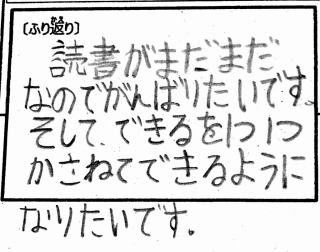 [ふり返り]
読書がまだまだ
なのでがんばりたいです。
そして、できるを1つ1つ
かさねてできるように
なりたいです。